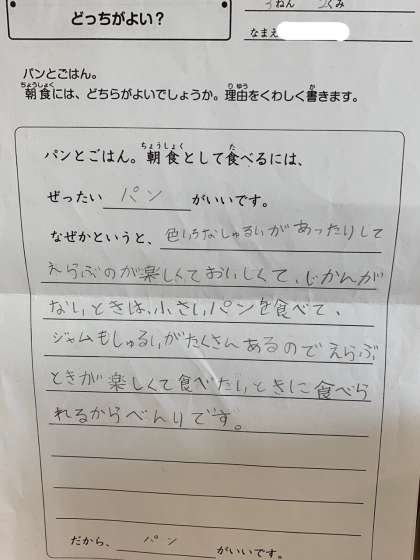 どっちがよい？
3ねん 2くみ
なまえ
パンとごはん。
朝食には、どちらがよいでしょうか。理由をくわしく書きます。
パンとごはん。朝食として食べるには、
ぜったい パン がいいです。
なぜかというと、色いろなしゅるいがあったりして
えらぶのが楽しくておいしくて、じかんが
ないときは、小さいパンを食べて、
ジャムもしゅるいがたくさんあるのでえらぶ
ときが楽しくて食べたいときに食べら
れるからべんりです。
だから、 パン がいいです。